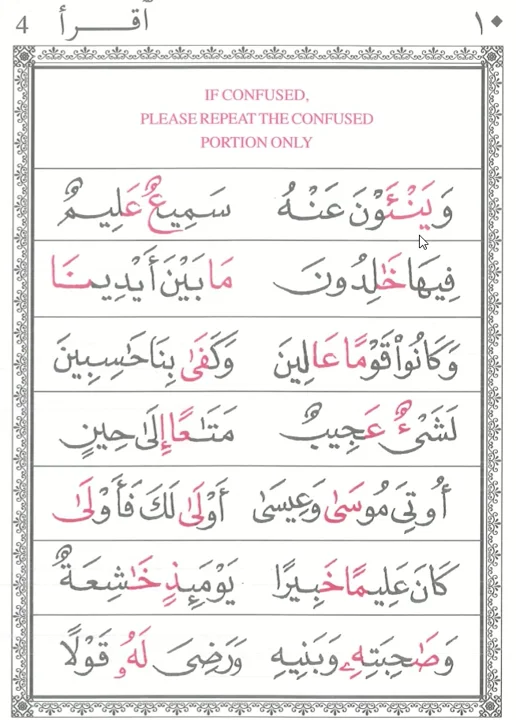 4 اقرأ ١٠
IF CONFUSED,
PLEASE REPEAT THE CONFUSED
PORTION ONLY
وَيَنْـَٔوْنَ عَنْهُ سَمِيعٌ عَلِيمٌ
فِيهَا خَٰلِدُونَ مَا بَيْنَ أَيْدِينَا
وَكَانُوا۟ قَوْمًا عَالِينَ وَكَفَىٰ بِنَا حَٰسِبِينَ
لَشَىْءٌ عَجِيبٌ مَتَٰعًا إِلَىٰ حِينٍ
أُوتِىَ مُوسَىٰ وَعِيسَىٰ أَوْلَىٰ لَكَ فَأَوْلَىٰ
كَانَ عَلِيمًا خَبِيرًا يَوْمَئِذٍ خَٰشِعَةٌ
وَصَٰحِبَتِهِۦ وَبَنِيهِ وَرَضِىَ لَهُۥ قَوْلًا